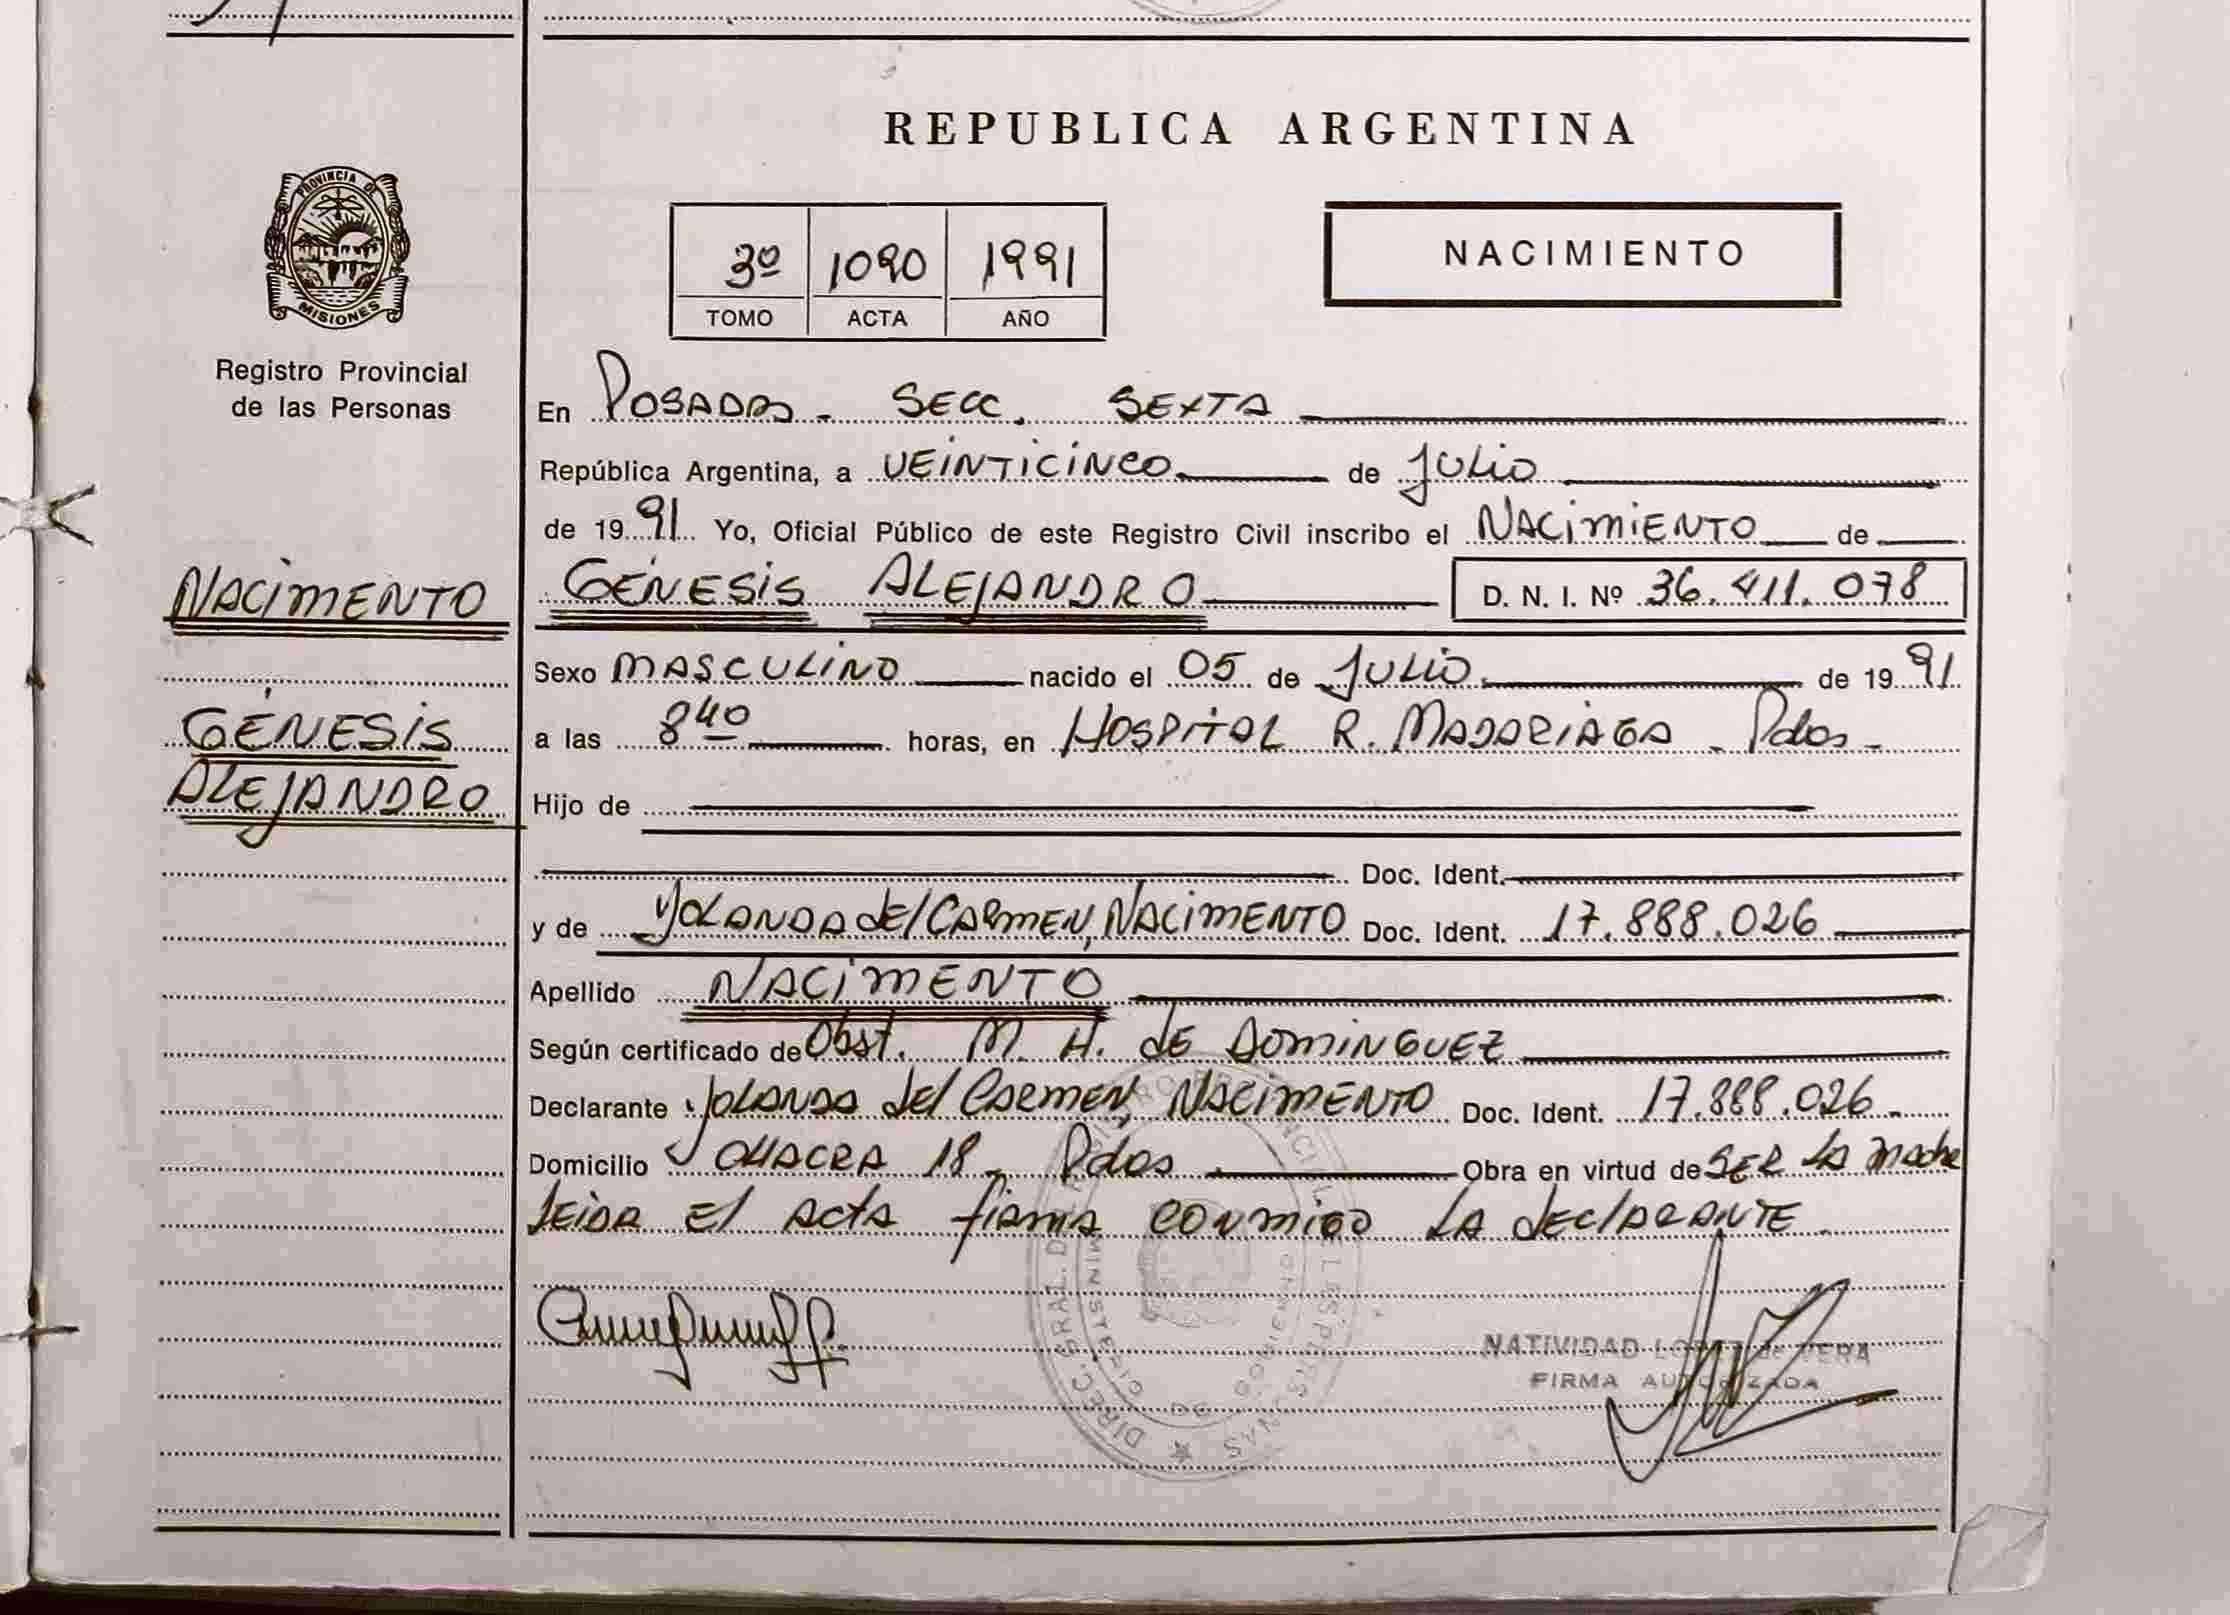 REPUBLICA ARGENTINA
PROVINCIA DE
MISIONES
Registro Provincial
de las Personas
3º 1090 1991
TOMO ACTA AÑO
NACIMIENTO
En POSADAS - SECC. SEXTA
República Argentina, a VEINTICINCO de JULIO
de 1991 Yo, Oficial Público de este Registro Civil inscribo el NACIMIENTO de
NACIMENTO
GÉNESIS ALEJANDRO D. N. I. Nº 36.411.078
Sexo MASCULINO nacido el 05 de JULIO de 1991
GÉNESIS
ALEJANDRO
a las 8 40 horas, en HOSPITAL R. MADARIAGA - Pdas -
Hijo de
Doc. Ident.
y de YOLANDA del CARMEN, NACIMENTO Doc. Ident. 17.888.026
Apellido NACIMENTO
Según certificado de Obst. M. H. de DOMINGUEZ
Declarante YOLANDA del CARMEN, NACIMENTO Doc. Ident. 17.888.026 -
Domicilio CHACRA 18 - Pdas Obra en virtud de SER LA madre
LEIDA El ActA firma conmigo LA declARANTE
NATIVIDAD LOPEZ de VERA
FIRMA AUTORIZADA
DIREC. GRAL. DEL REGISTRO PROVINCIAL DE LAS PERSONAS
MINISTERIO DE GOBIERNO